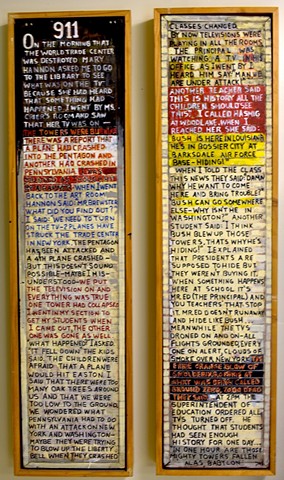 911
ON THE MORNING THAT
THE WORLD TRADE CENTER
WAS DESTROYED MARY
HANNON ASKED ME TO GO
TO THE LIBRARY TO SEE
WHAT WAS ON THE TV
BECAUSE SHE HAD HEARD
THAT SOMETHING HAD
HAPPENED. I WENT BY MS.
ROOM AND SAW
THAT HER TV WAS ON —
THE TOWERS WERE BURNING
THERE WAS A REPORT THAT
A PLANE HAD CRASHED
INTO THE PENTAGON AND
ANOTHER HAD CRASHED IN
PENNSYLVANIA
WHEN I WENT
BACK TO THE ART ROOM
HANNON SAID: MR BREWSTER
WHAT DID YOU FIND OUT?
I SAID: WE NEED TO TURN
ON THE TV-2 PLANES HAVE
STRUCK THE TRADE CENTER
IN NEW YORK. THE PENTAGON
HAS BEEN ATTACKED AND
A 4TH PLANE CRASHED—
BUT THIS DOESN'T SOUND
POSSIBLE—MAYBE I MIS-
UNDERSTOOD—WE PUT
THE TELEVISION ON AND
EVERYTHING WAS TRUE
ONE TOWER HAD COLLAPSED
I WENT IN MY SECTION TO
GET MY STUDENTS. WHEN
I CAME OUT, THE OTHER
ONE WAS GONE AS WELL
WHAT HAPPENED I ASKED
IT FELL DOWN THE KIDS
SAID. THE CHILDREN WERE
AFRAID THAT A PLANE
WOULD HIT EASTON. I
SAID THAT THERE WERE TOO
MANY OAK TREES AROUND
US AND THAT WE WERE
TOO LOW TO THE GROUND.
WE WONDERED WHAT
PENNSYLVANIA HAD TO DO
WITH AN ATTACK ON NEW
YORK AND WASHINGTON—
MAYBE THEY WERE TRYING
TO BLOW UP THE LIBERTY
BELL WHEN THEY CRASHED
CLASSES CHANGED
BY NOW TELEVISIONS WERE
PLAYING IN ALL THE ROOMS.
THE PRINCIPAL WAS
WATCHING A TV IN HIS
OFFICE AS I WENT BY I
HEARD HIM SAY MAN WE
ARE UNDER ATTACK!
ANOTHER TEACHER SAID
THIS IS HISTORY ALL THE
CHILDREN SHOULD SEE
THIS. I CALLED
AT WOODLAWN. WHEN I
REACHED HER SHE SAID:
BUSH IS HERE IN LOUISIANA
HE'S IN BOSSIER CITY AT
BARKSDALE AIR FORCE
BASE-HIDING!
WHEN I TOLD THE CLASS
THIS NEWS THEY SAID DAMN
WHY HE WANT TO COME
HERE AND BRING TROUBLE?
BUSH CAN GO SOMEWHERE
ELSE-WHY ISN'T HE IN
WASHINGTON? ANOTHER
STUDENT SAID: I THINK
BUSH BLEW UP THOSE
TOWERS, THAT'S WHY HE'S
HIDING! I EXPLAINED
THAT PRESIDENTS ARE
SUPPOSED TO HIDE BUT
THEY WEREN'T BUYING IT.
WHEN SOMETHING HAPPENS
HERE AT SCHOOL IT'S
MR. ED (THE PRINCIPAL) AND
YOU TEACHERS THAT STOP
IT. MR. ED DOESN'T RUN AWAY
AND HIDE LIKE BUSH.
MEANWHILE THE TV'S
DRONED ON AND ON-ALL
FLIGHTS GROUNDED, EVERY
ONE ON ALERT, CLOUDS OF
SMOKE OVER NEW YORK CITY
EERIE ORANGE GLOW OF
WHAT WAS BEING CALLED
GROUND ZERO
THEY SAID. AT 2PM THE
SUPERINTENDENT OF
EDUCATION ORDERED ALL
TVS TURNED OFF. HE
THOUGHT THAT STUDENTS
HAD SEEN ENOUGH
HISTORY FOR ONE DAY.
IN ONE HOUR ARE THOSE
MIGHTY TOWERS FALLEN
ALAS BABYLON